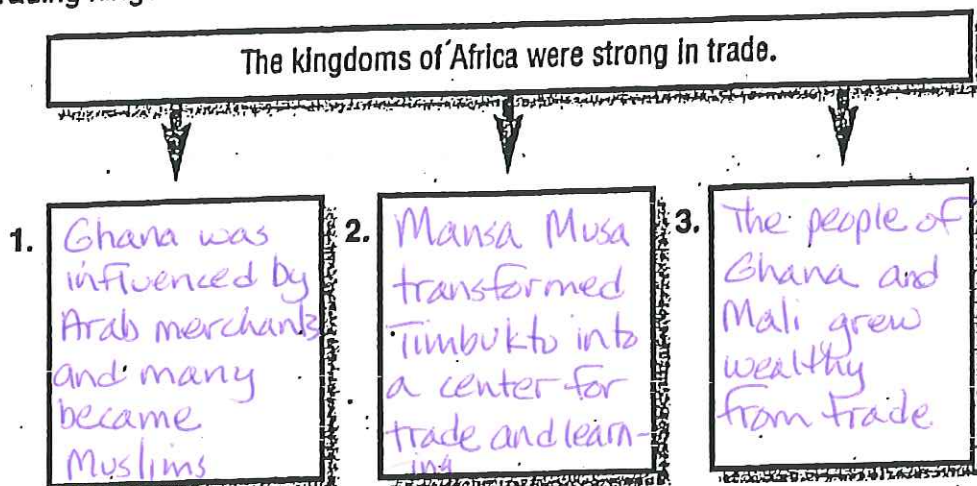 The kingdoms of Africa were strong in trade.
1.
Ghana was
influenced by
Arab merchants
and many
became
Muslims
2.
Mansa Musa
transformed
Timbukto into
a center for
trade and learn-
ing
3.
The people of
Ghana and
Mali grew
wealthy
from trade